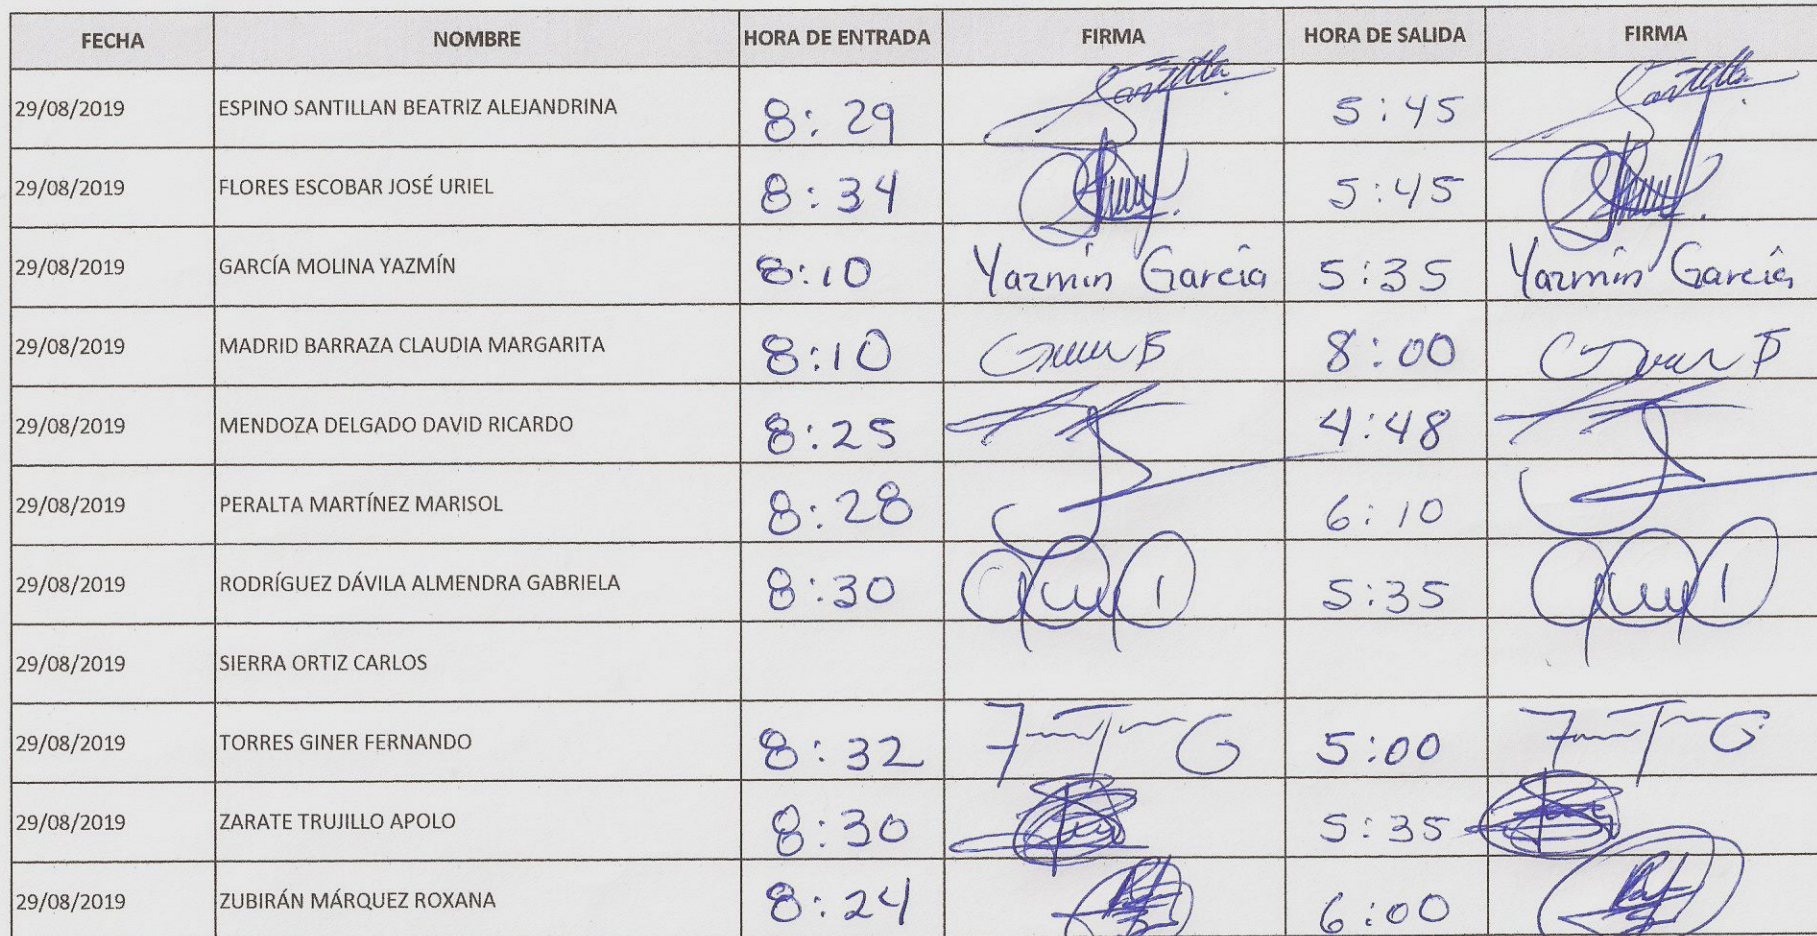 FECHA NOMBRE HORA DE ENTRADA FIRMA HORA DE SALIDA FIRMA
29/08/2019 ESPINO SANTILLAN BEATRIZ ALEJANDRINA 8:29 5:45
29/08/2019 FLORES ESCOBAR JOSÉ URIEL 8:34 5:45
29/08/2019 GARCÍA MOLINA YAZMÍN 8:10 Yazmín García 5:35 Yazmín García
29/08/2019 MADRID BARRAZA CLAUDIA MARGARITA 8:10 8:00
29/08/2019 MENDOZA DELGADO DAVID RICARDO 8:25 4:48
29/08/2019 PERALTA MARTÍNEZ MARISOL 8:28 6:10
29/08/2019 RODRÍGUEZ DÁVILA ALMENDRA GABRIELA 8:30 5:35
29/08/2019 SIERRA ORTIZ CARLOS
29/08/2019 TORRES GINER FERNANDO 8:32 5:00
29/08/2019 ZARATE TRUJILLO APOLO 8:30 5:35
29/08/2019 ZUBIRÁN MÁRQUEZ ROXANA 8:24 6:00